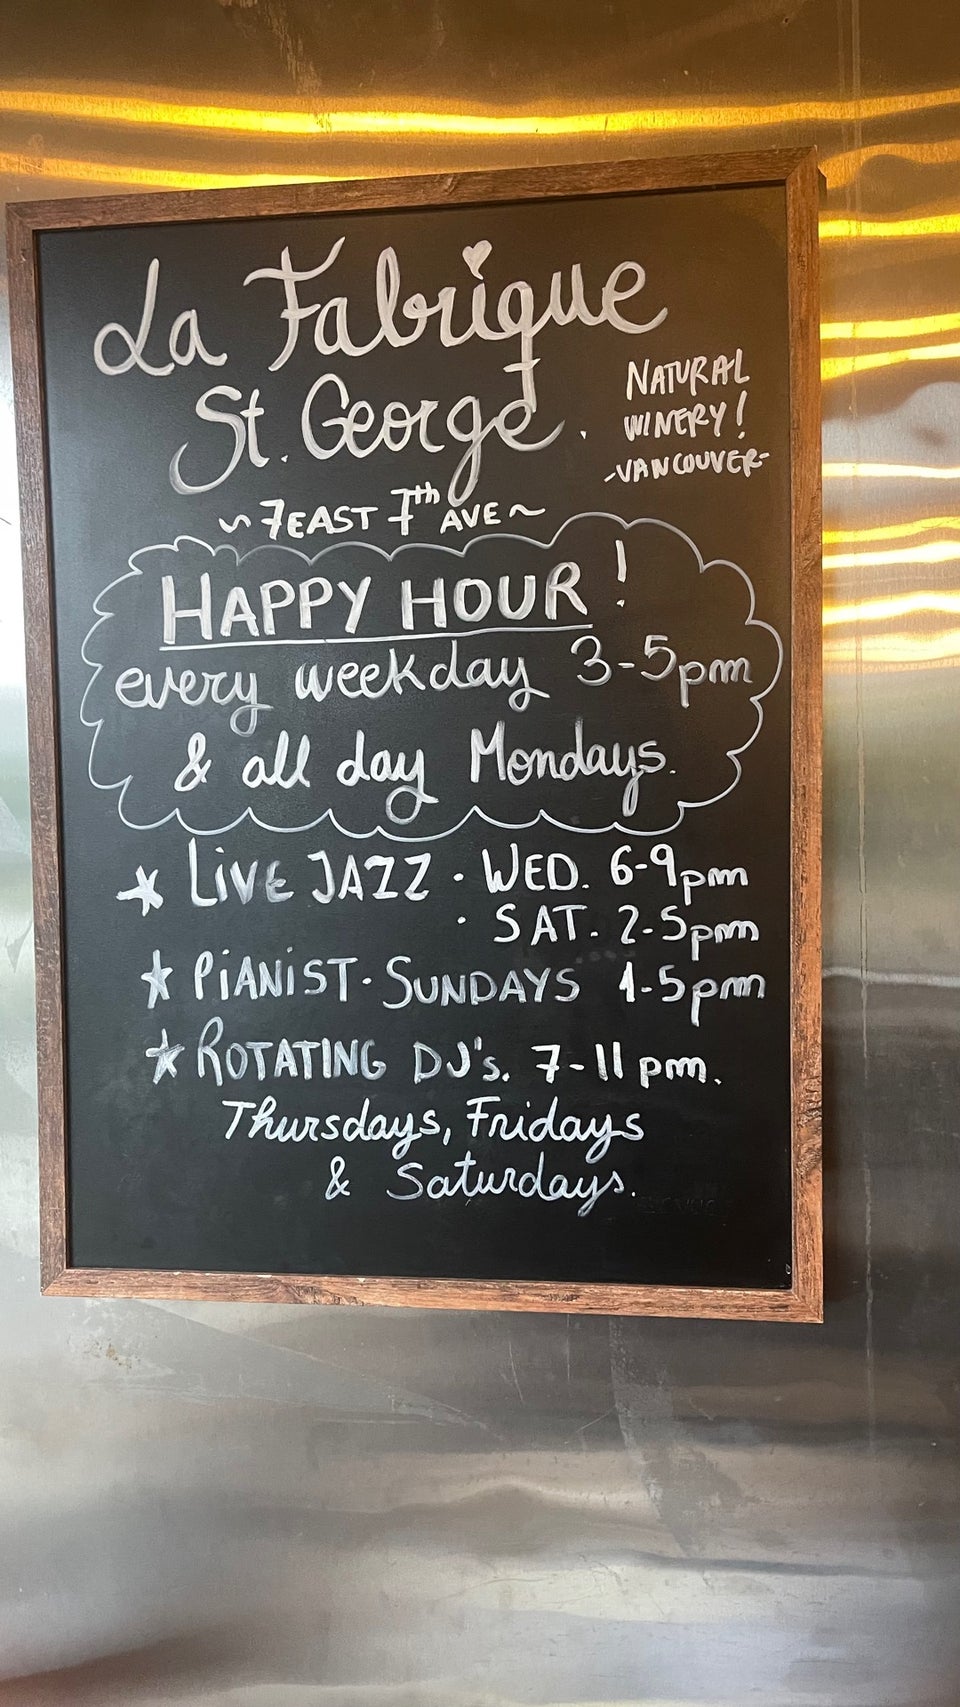 La Fabrique
St. George.
NATURAL
WINERY!
-VANCOUVER-
~ 7 EAST 7th AVE ~
HAPPY HOUR!
every weekday 3-5pm
& all day Mondays.
★ LiVE JAZZ · WED. 6-9pm
· SAT. 2-5pm
★ PiANiST · SUNDAYS 1-5pm
★ ROTATING DJ's. 7-11pm.
Thursdays, Fridays
& Saturdays.